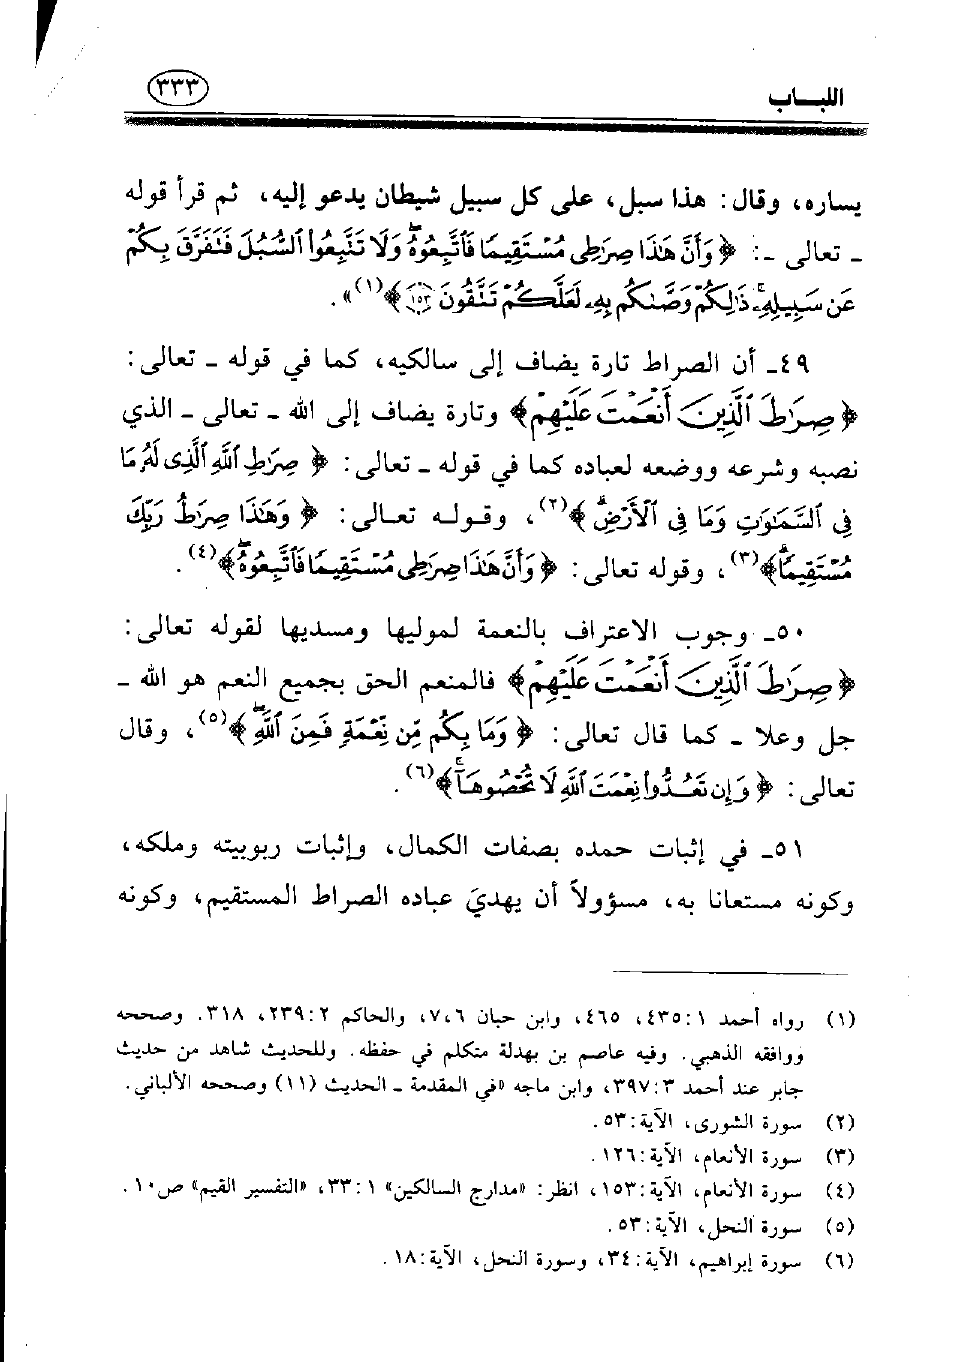 اللبـــاب
٣٣٣
يساره، وقال: هذا سبل، على كل سبيل شيطان يدعو إليه، ثم قرأ قوله
ـ تعالى ـ: ﴿وَأَنَّ هَٰذَا صِرَٰطِى مُسْتَقِيمًا فَٱتَّبِعُوهُ ۖ وَلَا تَتَّبِعُوا۟ ٱلسُّبُلَ فَتَفَرَّقَ بِكُمْ
عَن سَبِيلِهِۦ ۚ ذَٰلِكُمْ وَصَّىٰكُم بِهِۦ لَعَلَّكُمْ تَتَّقُونَ ١٥٣﴾(١)».
٤٩ـ أن الصراط تارة يضاف إلى سالكيه، كما في قوله ـ تعالى:
﴿صِرَٰطَ ٱلَّذِينَ أَنْعَمْتَ عَلَيْهِمْ﴾ وتارة يضاف إلى الله ـ تعالى ـ الذي
نصبه وشرعه ووضعه لعباده كما في قوله ـ تعالى: ﴿صِرَٰطِ ٱللَّهِ ٱلَّذِى لَهُۥ مَا
فِى ٱلسَّمَٰوَٰتِ وَمَا فِى ٱلْأَرْضِ ۗ﴾(٢)، وقوله تعالى: ﴿وَهَٰذَا صِرَٰطُ رَبِّكَ
مُسْتَقِيمًا ۗ﴾(٣)، وقوله تعالى: ﴿وَأَنَّ هَٰذَا صِرَٰطِى مُسْتَقِيمًا فَٱتَّبِعُوهُ ۖ﴾(٤).
٥٠ـ وجوب الاعتراف بالنعمة لموليها ومسديها لقوله تعالى:
﴿صِرَٰطَ ٱلَّذِينَ أَنْعَمْتَ عَلَيْهِمْ﴾ فالمنعم الحق بجميع النعم هو الله ـ
جل وعلا ـ كما قال تعالى: ﴿وَمَا بِكُم مِّن نِّعْمَةٍ فَمِنَ ٱللَّهِ ۖ﴾(٥)، وقال
تعالى: ﴿وَإِن تَعُدُّوا۟ نِعْمَتَ ٱللَّهِ لَا تُحْصُوهَآ ۗ﴾(٦).
٥١ـ في إثبات حمده بصفات الكمال، وإثبات ربوبيته وملكه،
وكونه مستعانا به، مسؤولاً أن يهديَ عباده الصراط المستقيم، وكونه
(١) رواه أحمد ٤٣٥:١، ٤٦٥، وابن حبان ٧،٦، والحاكم ٢٣٩:٢، ٣١٨. وصححه
ووافقه الذهبي. وفيه عاصم بن بهدلة متكلم في حفظه. وللحديث شاهد من حديث
جابر عند أحمد ٣٩٧:٣، وابن ماجه «في المقدمة ـ الحديث (١١) وصححه الألباني.
(٢) سورة الشورى، الآية:٥٣.
(٣) سورة الأنعام، الآية:١٢٦.
(٤) سورة الأنعام، الآية:١٥٣، انظر: «مدارج السالكين» ٣٣:١، «التفسير القيم» ص١٠.
(٥) سورة النحل، الآية:٥٣.
(٦) سورة إبراهيم، الآية:٣٤، وسورة النحل، الآية:١٨.